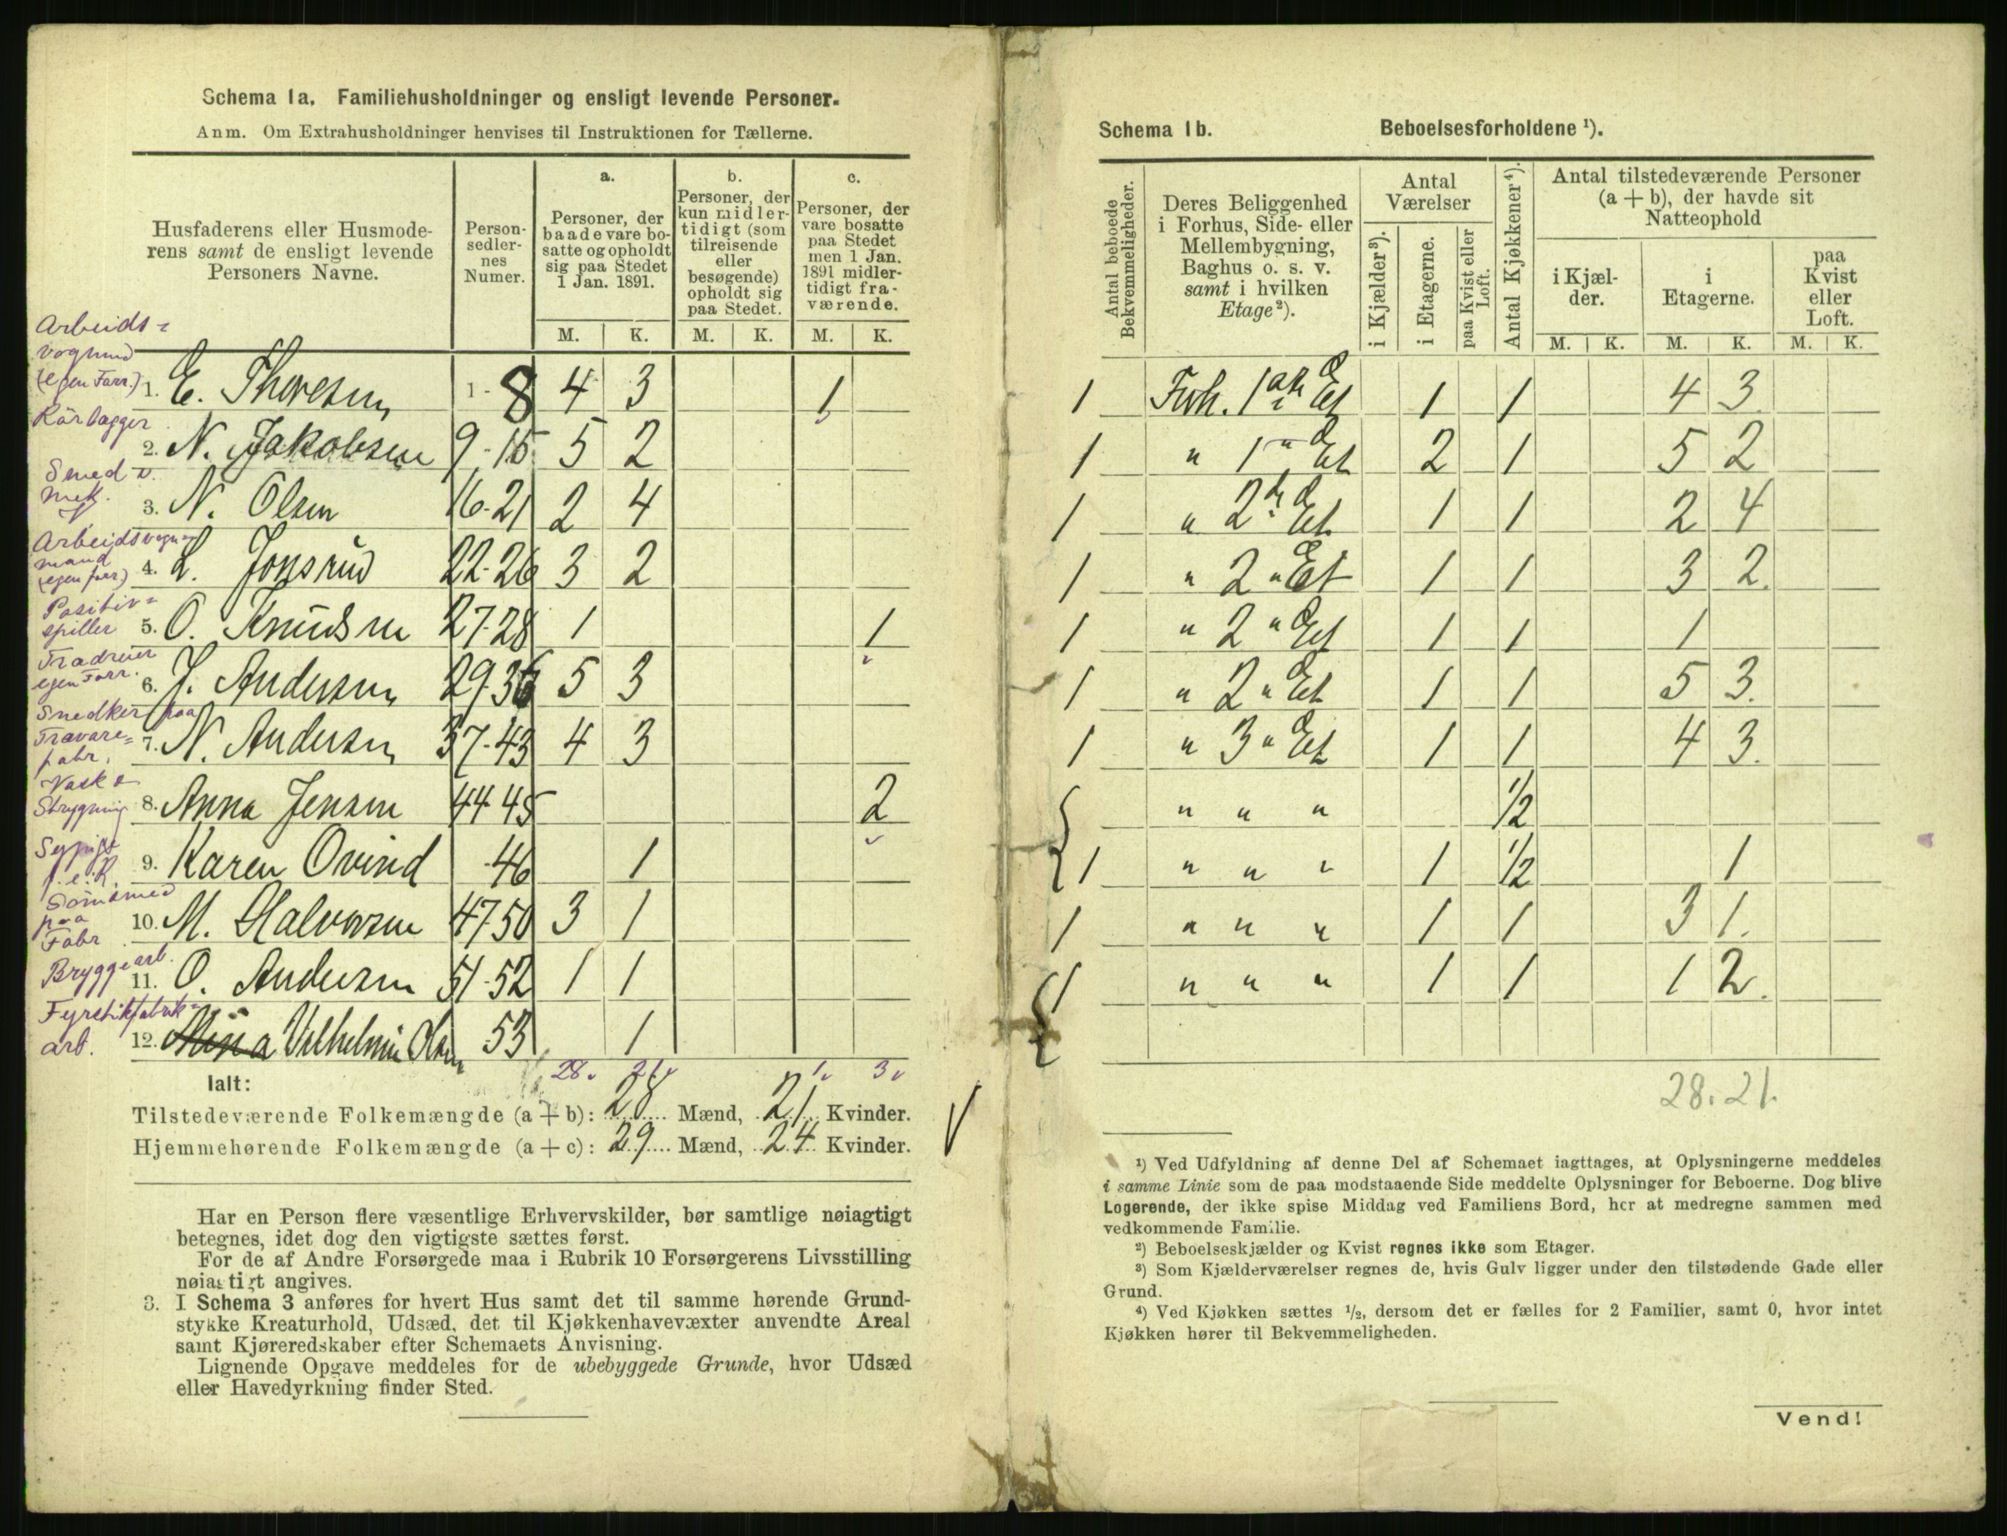 Schema 1a. Familiehusholdninger og ensligt levende Personer.
Anm. Om Extrahusholdninger henvises til Instruktionen for Tællerne.
Husfaderens eller Husmode-
rens samt de ensligt levende
Personers Navne.
Person-
sedler-
nes
Numer.
a.
Personer, der
baade vare bo-
satte og opholdt
sig paa Stedet
1 Jan. 1891.
b.
Personer, der
kun midler-
tidigt (som
tilreisende
eller
besøgende)
opholdt sig
paa Stedet.
c.
Personer, der
vare bosatte
paa Stedet
men 1 Jan.
1891 midler-
tidigt fra-
værende.
M. K. M. K. M. K.
Arbeids-
vogmnd
(egen Forr.)
1. E. Thoresen 1-8 4 3 1
Rörlægger
2. N. Jakobsen 9-15 5 2
Smed v.
mek.
3. N. Olsen 16-21 2 4
Arbeidsvogn-
mand
(egen forr)
4. L. Jonsrud 22-26 3 2
Positiv-
spiller
5. O. Knudsen 27-28 1 1
Trædreier
egen Forr.
6. J. Andersen 29-36 5 3
Snedker paa
Trævare-
fabr.
7. N. Andersen 37-43 4 3
Vask &
Strygning
8. Anna Jensen 44-45 2
Sypige
f. e. R.
9. Karen Ovind -46 1
Sömsmed
paa
Fabr
10. M. Halvorsen 47-50 3 1
Bryggearb.
11. O. Andersen 51-52 1 1
Fyrstikfabrik-
arb.
12. Mina Vilhelmine Olsen 53 1
28 21 1 3
Ialt:
Tilstedeværende Folkemængde (a + b): 28 Mænd, 21 Kvinder.
Hjemmehørende Folkemængde (a + c): 29 Mænd, 24 Kvinder.
Har en Person flere væsentlige Erhvervskilder, bør samtlige nøiagtigt
betegnes, idet dog den vigtigste sættes først.
For de af Andre Forsørgede maa i Rubrik 10 Forsørgerens Livsstilling
nøiagtigt angives.
3. I Schema 3 anføres for hvert Hus samt det til samme hørende Grund-
stykke Kreaturhold, Udsæd, det til Kjøkkenhavevæxter anvendte Areal
samt Kjøreredskaber efter Schemaets Anvisning.
Lignende Opgave meddeles for de ubebyggede Grunde, hvor Udsæd
eller Havedyrkning finder Sted.
Schema 1b. Beboelsesforholdene ¹).
Antal beboede
Bekvemmeligheder.
Deres Beliggenhed
i Forhus, Side- eller
Mellembygning,
Baghus o. s. v.
samt i hvilken
Etage ²).
Antal
Værelser
i Kjælder ³).
i Etagerne.
paa Kvist eller
Loft.
Antal Kjøkkener ⁴).
Antal tilstedeværende Personer
(a + b), der havde sit
Natteophold
i Kjæl-
der.
i
Etagerne.
paa
Kvist
eller
Loft.
M. K. M. K. M. K.
1 Forh. 1ste Et 1 1 4 3
1 " 1 " Et 2 1 5 2
1 " 2den Et 1 1 2 4
1 " 2 " Et 1 1 3 2
1 " 2 " Et 1 1 1
1 " 2 " Et 1 1 5 3
1 " 3 " Et 1 1 4 3
" " " 1/2
1 " " " 1 1/2 1
1 " " " 1 1 3 1
1 " " " 1 1 1 2
28. 21.
¹) Ved Udfyldning af denne Del af Schemaet iagttages, at Oplysningerne meddeles
i samme Linie som de paa modstaaende Side meddelte Oplysninger for Beboerne. Dog blive
Logerende, der ikke spise Middag ved Familiens Bord, her at medregne sammen med
vedkommende Familie.
²) Beboelseskjælder og Kvist regnes ikke som Etager.
³) Som Kjælderværelser regnes de, hvis Gulv ligger under den tilstødende Gade eller
Grund.
⁴) Ved Kjøkken sættes ¹/₂, dersom det er fælles for 2 Familier, samt 0, hvor intet
Kjøkken hører til Bekvemmeligheden.
Vend!